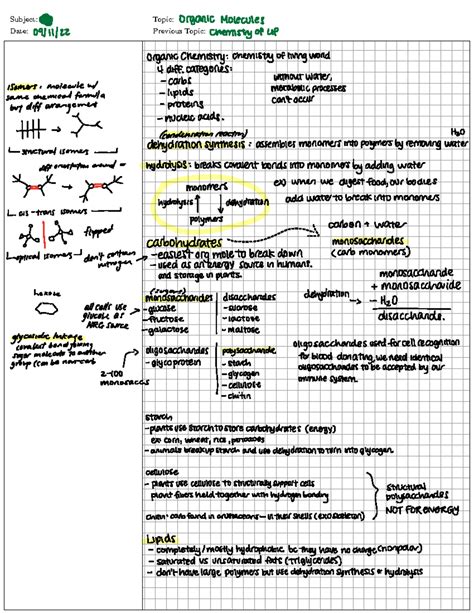 Subject:
Topic: Organic Molecules
Date: 09/11/22
Previous Topic: Chemistry of Life
Organic Chemistry: chemistry of living world
4 diff. categories:
- carbs
- lipids
- proteins
- nucleic acids.
without water,
metabolic processes
can't occur
Isomers: molecule w/
same chemical formula
but diff arrangement
structural isomers
diff orientation around =
cis-trans isomers
flipped
optical isomers
(condensation reaction)
H₂O
dehydration synthesis: assembles monomers into polymers by removing water
hydrolysis: breaks covalent bonds into monomers by adding water
monomers
hydrolysis
dehydration
polymers
ex) when we digest food, our bodies
add water to break into monomers
don't contain
nitrogen
carbohydrates
- easiest org mole to break down
- used as an energy source in humans.
and storage in plants.
carbon + water
monosaccharides
(carb monomers)
hexose
all cells use
glucose as
energy source
(sugars)
monosaccharides
- glucose
- fructose
- galactose
disaccharides
- sucrose
- lactose
- maltose
dehydration
monosaccharide
+ monosaccharide
- H₂O
disaccharide.
glycosidic linkage
covalent bond joining
sugar molecule to another
group (can be non carb)
2-100
monosaccs
oligosaccharides
- glycoprotein
polysaccharide
- starch
- glycogen
- cellulose
- chitin
oligosaccharides used for cell recognition
for blood donating, we need identical
oligosaccharides to be accepted by our
immune system.
starch
- plants use starch to store carbohydrates (energy)
ex corn, wheat, rice, potatoes
- animals breakup starch and use dehydration to turn into glycogen.
cellulose
- plants use cellulose to structurally support cells
plant fibers held together with hydrogen bonding
chitin: carb found in arthropods - in their shells (exoskeleton)
structural
polysaccharides
NOT FOR ENERGY
Lipids
- completely/mostly hydrophobic bc they have no charge (nonpolar)
- saturated vs unsaturated fats (triglycerides)
- don't have large polymers but use dehydration synthesis or hydrolysis